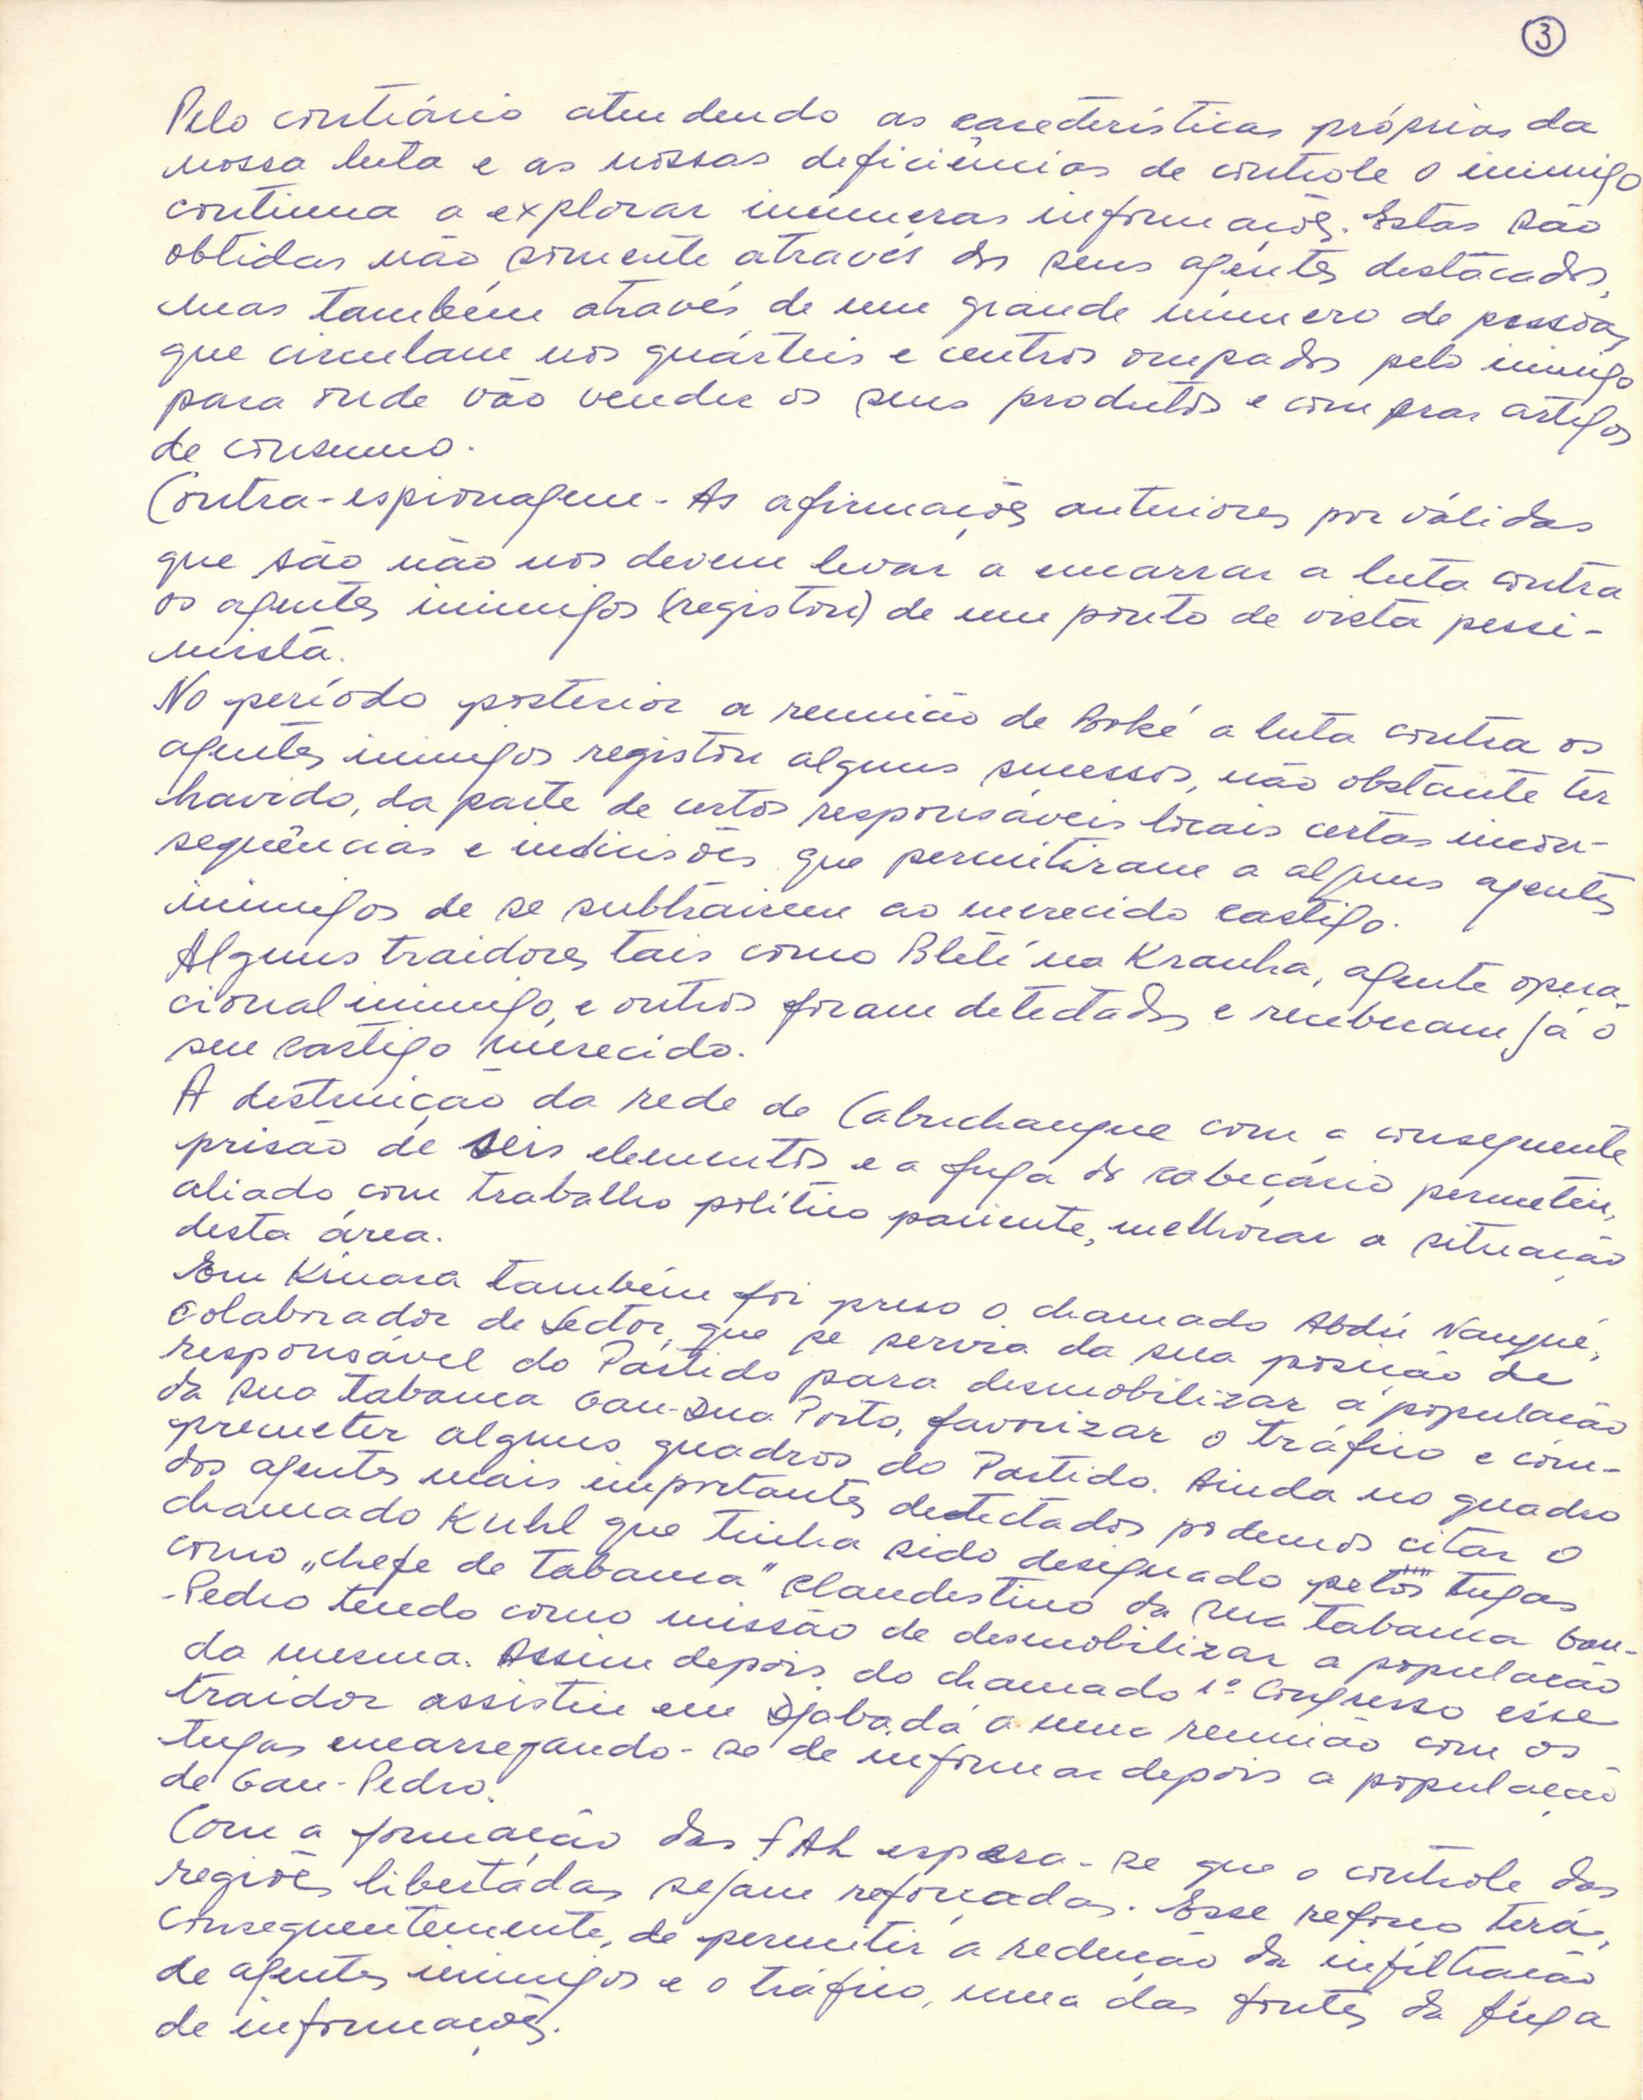 3
Pelo contrário atendendo as características próprias da
nossa luta e as nossas deficiências de controle o inimigo
continua a explorar inúmeras informações. Estas são
obtidas não somente através dos seus agentes destacados,
mas também através de um grande número de pessoas
que circulam nos quartéis e centros ocupados pelo inimigo
para onde vão vender os seus produtos e comprar artigos
de consumo.
Contra-espionagem - As afirmações anteriores por válidas
que são não nos devem levar a encarrar a luta contra
os agentes inimigos (registou) de um ponto de vista pessi-
mista.
No período posterior a reunião de Boké a luta contra os
agentes inimigos registou alguns sucessos, não obstante ter
havido, da parte de certos responsáveis locais certas incon-
sequências e indicisões que permitiram a alguns agentes
inimigos de se subtrairem ao merecido castigo.
Alguns traidores tais como Blété na Kranha, agente opera-
cional inimigo, e outros foram detectados e receberam já o
seu castigo merecido.
A destruição da rede de Cabuchangue com a consequente
prisão de seis elementos e a fuga do cabeçário permetiu,
aliado com trabalho político paciente, melhorar a situação
desta área.
Em Kinara também foi preso o chamado Abdú Nangué,
colaborador de Sector, que se servia da sua posição de
responsável do Partido para desmobilizar a população
da sua tabanca Gan-Dua Porto, favorizar o tráfico e com-
premeter alguns quadros do Partido. Ainda no quadro
dos agentes mais importantes detectados podemos citar o
chamado Kuhl que tinha sido designado pelos tugas
como "chefe de tabanca" clandestino da sua tabanca Gan-
-Pedro tendo como missão de desmobilizar a população
da mesma. Assim depois do chamado 1º Congresso esse
traidor assistiu em Djabadá a uma reunião com os
tugas encarregando-se de informar depois a população
de Gan-Pedro.
Com a formação das FAL espera-se que o controle das
regiões libertadas sejam reforçadas. Esse reforço terá,
consequentemente, de permitir a redução da infiltração
de agentes inimigos e o tráfico, uma das fontes da fuga
de informações.